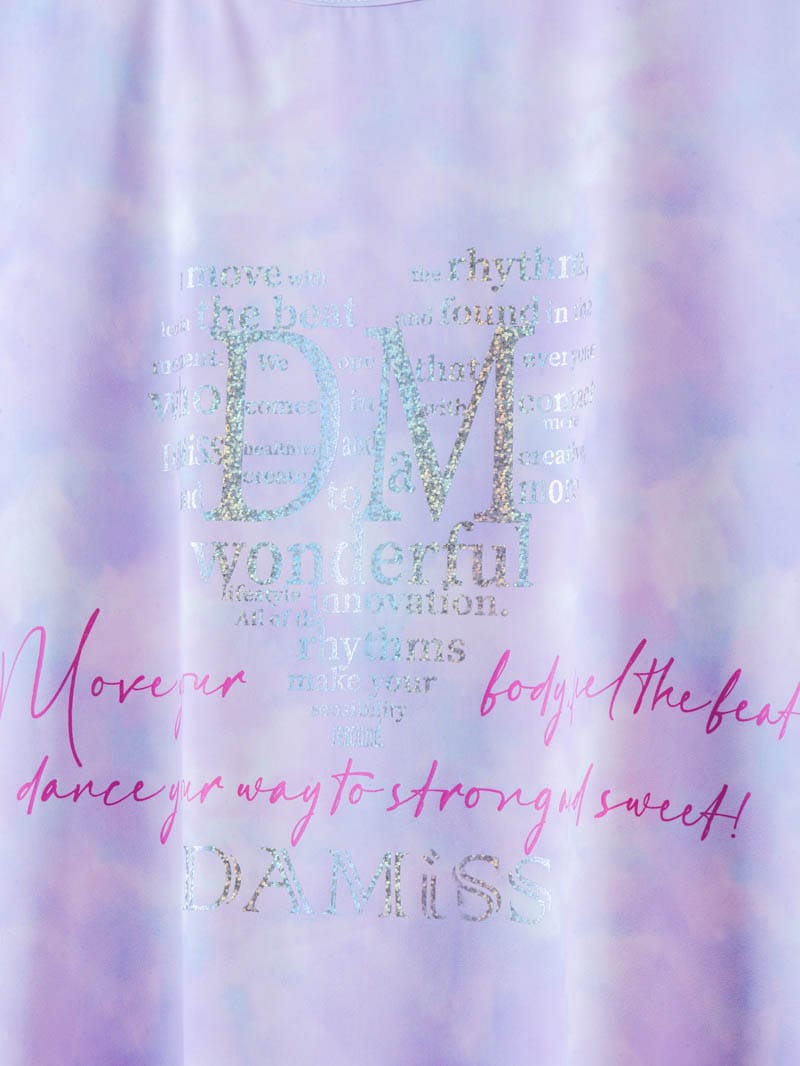 move with the rhythm
the beat and found in the
moment. We one that everyone
who comes in with contact
more
DM
DAMiSS healthier and creative
and create to a more
wonderful
lifestyle innovation.
All of the
rhythms
make your
sensibility
Move your body feel the beat
dance your way to strong and sweet!
DAMiSS